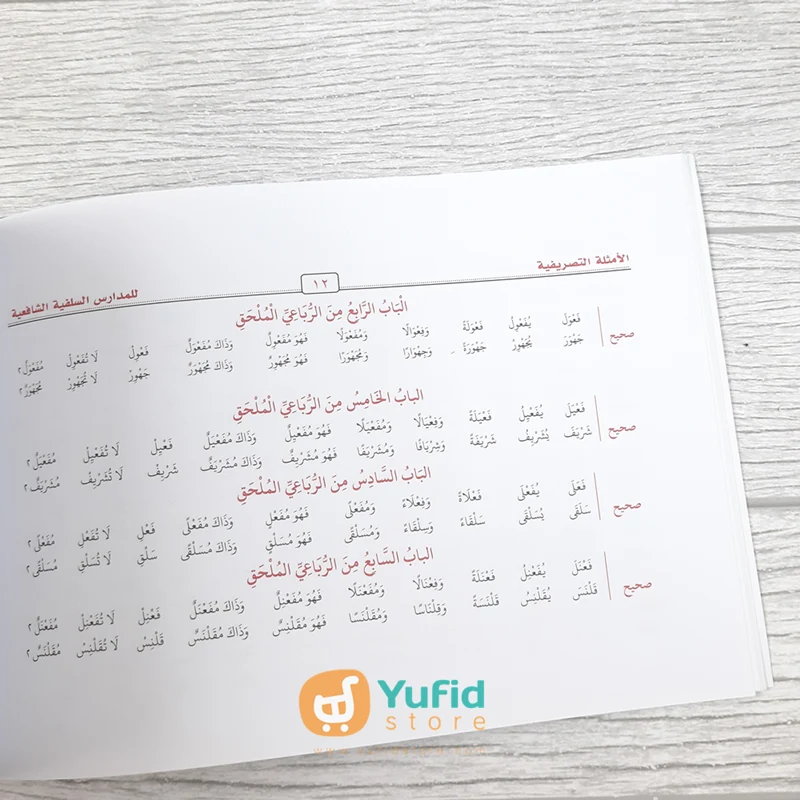 الأمثلة التصريفية
١٢
للمدارس السلفية الشافعية
الْبَابُ الرَّابِعُ مِنَ الرُّبَاعِيِّ الْمُلْحَقِ
صحيح
فَعْوَلَ يُفَعْوِلُ فَعْوَلَةً وَفِعْوَالًا وَمُفَعْوَلًا فَهُوَ مُفَعْوِلٌ وَذَاكَ مُفَعْوَلٌ فَعْوِلْ لَا تُفَعْوِلْ مُفَعْوَلٌ ٢
جَهْوَرَ يُجَهْوِرُ جَهْوَرَةً وَجِهْوَارًا وَمُجَهْوَرًا فَهُوَ مُجَهْوِرٌ وَذَاكَ مُجَهْوَرٌ جَهْوِرْ لَا تُجَهْوِرْ مُجَهْوَرٌ ٢
البابُ الخَامِسُ مِنَ الرُّبَاعِيِّ الْمُلْحَقِ
صحيح
فَعْيَلَ يُفَعْيِلُ فَعْيَلَةً وَفِعْيَالًا وَمُفَعْيَلًا فَهُوَ مُفَعْيِلٌ وَذَاكَ مُفَعْيَلٌ فَعْيِلْ لَا تُفَعْيِلْ مُفَعْيَلٌ ٢
شَرْيَفَ يُشَرْيِفُ شَرْيَفَةً وَشِرْيَافًا وَمُشَرْيَفًا فَهُوَ مُشَرْيِفٌ وَذَاكَ مُشَرْيَفٌ شَرْيِفْ لَا تُشَرْيِفْ مُشَرْيَفٌ ٢
البَابُ السَّادِسُ مِنَ الرُّبَاعِيِّ المُلْحَقِ
صحيح
فَعْلَى يُفَعْلَى فَعْلَاةً وَفِعْلَاءً وَمُفَعْلًى فَهُوَ مُفَعْلٍ وَذَاكَ مُفَعْلًى فَعْلِ لَا تُفَعْلِ مُفَعْلًى ٢
سَلْقَى يُسَلْقَى سَلْقَاءً وَسِلْقَاءً وَمُسَلْقًى فَهُوَ مُسَلْقٍ وَذَاكَ مُسَلْقًى سَلْقِ لَا تُسَلْقِ مُسَلْقًى ٢
البابُ السَّابِعُ مِنَ الرُّبَاعِيِّ المُلْحَقِ
صحيح
فَعْنَلَ يُفَعْنِلُ فَعْنَلَةً وَفِعْنَالًا وَمُفَعْنَلًا فَهُوَ مُفَعْنِلٌ وَذَاكَ مُفَعْنَلٌ فَعْنِلْ لَا تُفَعْنِلْ مُفَعْنَلٌ ٢
قَلْنَسَ يُقَلْنِسُ قَلْنَسَةً وَقِلْنَاسًا وَمُقَلْنَسًا فَهُوَ مُقَلْنِسٌ وَذَاكَ مُقَلْنَسٌ قَلْنِسْ لَا تُقَلْنِسْ مُقَلْنَسٌ ٢
Yufid
store